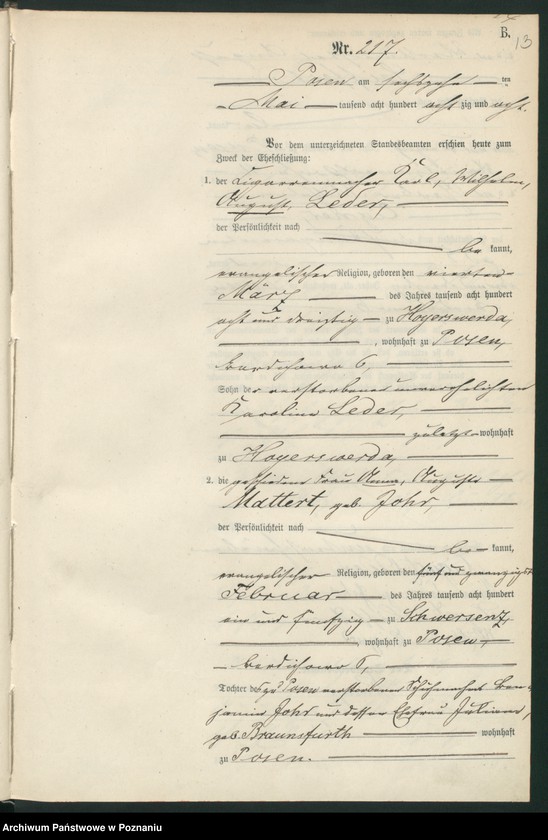 B.
13
Nr. 217.
Posen am sechszehn ten
Mai tausend acht hundert acht zig und acht.
Vor dem unterzeichneten Standesbeamten erschien heute zum
Zweck der Eheschließung:
1. der Cigarrenmacher Karl, Wilhelm,
August, Leder,
der Persönlichkeit nach
be kannt,
evangelischer Religion, geboren den vierten
März des Jahres tausend acht hundert
acht und dreißig zu Hoyerswerda,
, wohnhaft zu Posen,
Berdichowo 6,
Sohn der verstorbenen unverehelichten
Karoline Leder,
zuletzt wohnhaft
zu Hoyerswerda,
2. die geschiedene Frau Anna, Auguste
Mattert, geb. Johr,
der Persönlichkeit nach
be kannt,
evangelischer Religion, geboren den fünf und zwanzigsten
Februar des Jahres tausend acht hundert
ein und fünfzig zu Schwersenz,
, wohnhaft zu Posen,
Berdichowo 6,
Tochter des zu Posen verstorbenen Schuhmachers Ben-
jamin Johr und dessen Ehefrau Juliane,
geb. Braunsfurth wohnhaft
zu Posen.
Archiwum Państwowe w Poznaniu